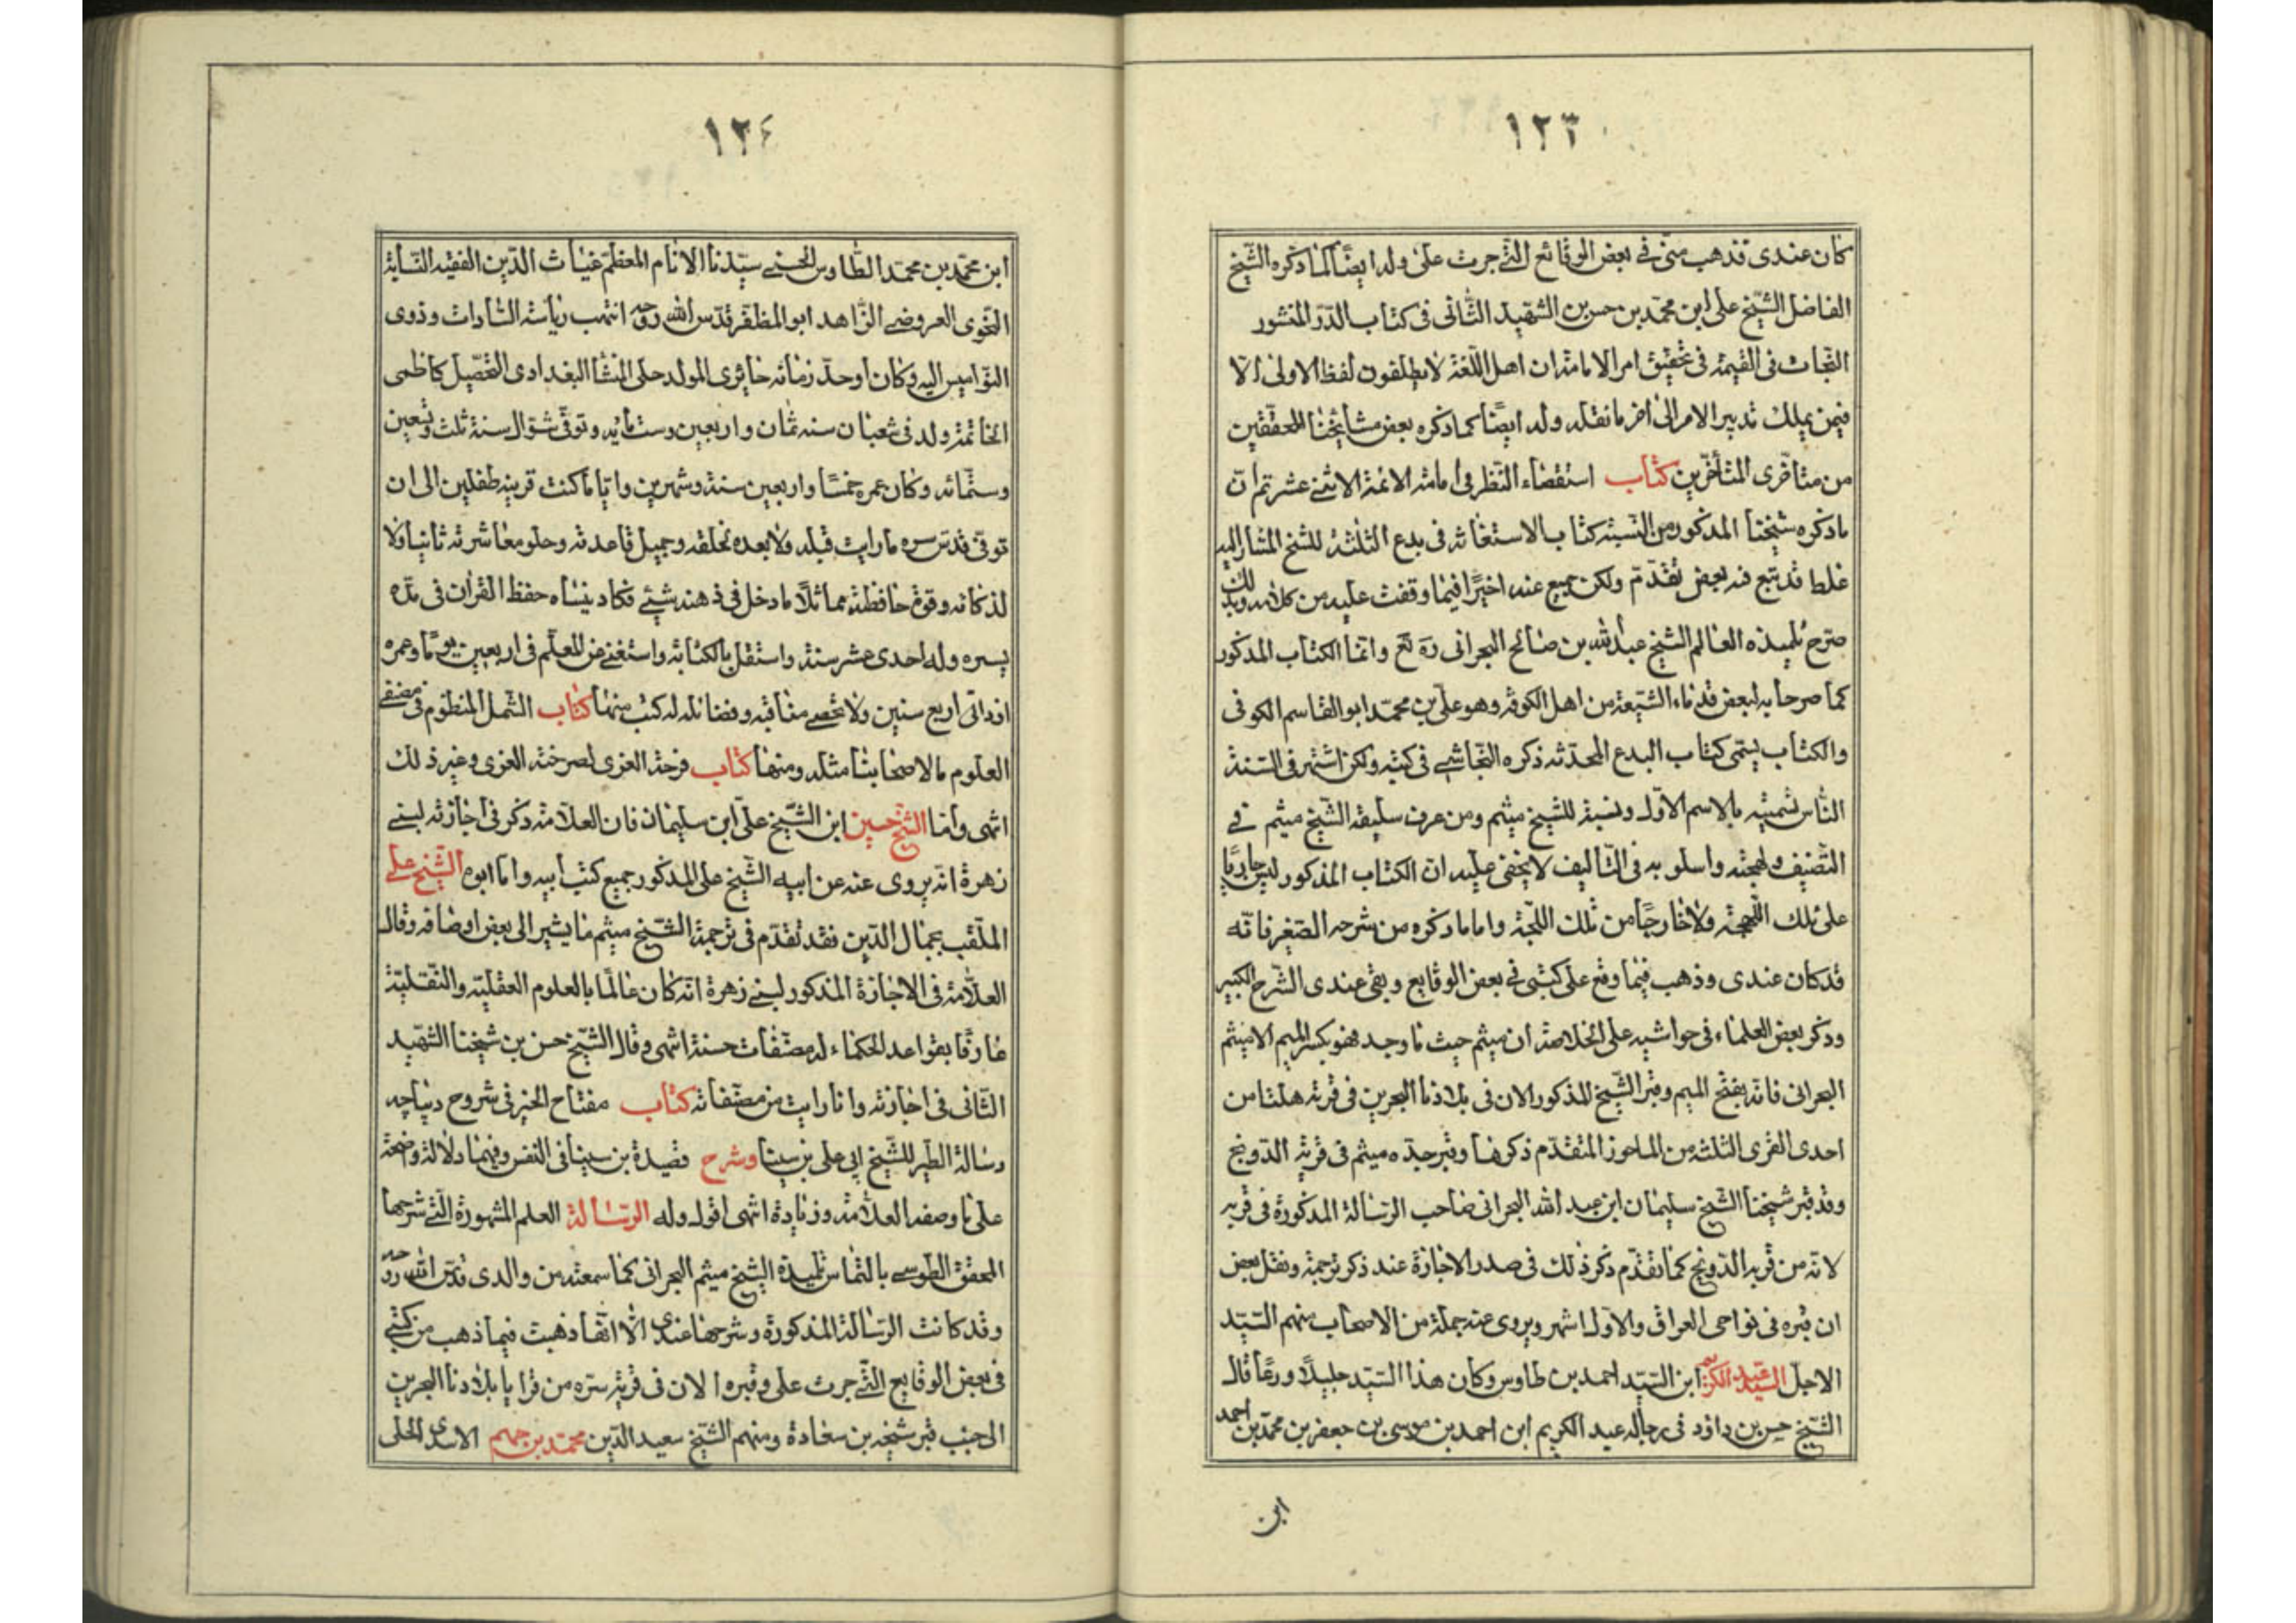 ١٢٣
كان عندى قد ذهب منى فى بعض الوقائع التى جرت على وله ايضًا كما ذكره الشيخ
الفاضل الشيخ على ابن محمد بن حسن بن الشهيد الثانى فى كتاب الدر المنثور
النجات فى القيمة فى تحقيق امر الامامة ان اهل اللغة لا يطلقون لفظ الاولى الا
فيمن يملك تدبير الامر الى اخر ما نقله وله ايضًا كما ذكره بعض مشايخنا المحققين
من متأخرى المتأخرين كتاب استقصاء النظر فى امامة الائمة الاثنى عشر ثم ان
ما ذكره شيخنا المذكور من النسبة كتاب الاستغاثة فى بدع الثلثة للشيخ المشار اليه
غلط قد تبع فيه بعض تقدم ولكن رجع عنه اخيرًا فيما وقفت عليه من كلامه وبذلك
صرح تلميذه العالم الشيخ عبد الله بن صالح البحرانى ره تع وانما الكتاب المذكور
كما صرحا به لبعض قدماء الشيعة من اهل الكوفة وهو على بن محمد ابو القاسم الكوفى
والكتاب يسمى كتاب البدع المحدثة ذكره النجاشى فى كتبه ولكن اشتهر فى السنة
الناس تسميته بالاسم الاول ونسبة للشيخ ميثم ومن عرف سليقة الشيخ ميثم فى
التصنيف ولهجته واسلوبه فى التاليف لا يخفى عليه ان الكتاب المذكور ليس جاريًا
على تلك اللهجة ولا خارجًا من تلك اللجة واما ما ذكره من شرحه الصغير فانه
قد كان عندى وذهب فيما وقع على كتبى فى بعض الوقايع وبقى عندى الشرح الكبير
وذكر بعض العلماء فى حواشيه على الخلاصة ان ميثم حيث ما وجد فهو بكسر الميم الا ميثم
البحرانى فانه بفتح الميم وقبر الشيخ المذكور الان فى بلادنا البحرين فى قرية هلتا من
احدى القرى الثلثة من الماحوز المتقدم ذكرها وقبر جده ميثم فى قرية الدونج
وقد قبر شيخنا الشيخ سليمان ابن عبد الله البحرانى صاحب الرسالة المذكورة فى قربه
لانه من قرية الدونج كما تقدم ذكر ذلك فى صدر الاجازة عند ذكر ترجمة ونقل بعض
ان قبره فى نواحى العراق والاول اشهر ويروى عنه جملة من الاصحاب منهم السيد
الاجل السيد عبد الكريم ابن السيد احمد بن طاوس وكان هذا السيد جليلًا ورعًا قال
الشيخ حسن بن داؤد فى رجاله عبد الكريم ابن احمد بن موسى بن جعفر بن محمد بن احمد
ابن
١٢٤
ابن محمد بن محمد الطاوس الحسنى سيدنا الانام المعظم غياث الدين الفقيه النسابة
النحوى العروضى الزاهد ابو المظفر قدس الله روحه انتهت رياسة السادات وذوى
النواميس اليه وكان اوحد زمانه حايرى المولد حلى المنشا البغدادى التحصيل كاظمى
الخاتمة ولد فى شعبان سنه ثمان واربعين وست مايه وتوفى شوال سنة ثلث وتسعين
وستمائه وكان عمره خمسًا واربعين سنة وشهرين واياما كنت قرينه طفلين الى ان
توفى قدس سره ما رايت قبله ولا بعده بخلقه وجميل قاعدته وحلو معاشرته ثانيا ولا
لذكائه وقوة حافظته مماثلًا ما دخل فى ذهنه شيئ فكاد ينساه حفظ القران فى مدة
يسيره وله احدى عشر سنة واستقل بالكتابة واستغنى عن المعلم فى اربعين يومًا وعمره
اذ ذاك اربع سنين ولا تحصى مناقبه وفضائله له كتب منها كتاب الشمل المنظوم فى مصنفى
العلوم ما لاصحابنا مثله ومنها كتاب فرحة الغرى لصرخة الغرى وغير ذلك
انتهى واما الشيخ حسين ابن الشيخ على ابن سليمان فان العلامة ذكر فى اجازته لبنى
زهرة انه يروى عنه عن ابيه الشيخ على المذكور جميع كتب ابيه واما ابوه الشيخ على
الملقب بجمال الدين فقد تقدم فى ترجمة الشيخ ميثم ما يشير الى بعض اوصافه وقال
العلامة فى الاجازة المذكور لبنى زهرة انه كان عالمًا بالعلوم العقلية والنقلية
عارفًا بقواعد الحكماء له مصنفات حسنة انتهى وقال الشيخ حسن بن شيخنا الشهيد
الثانى فى اجازته وانا رايت من مصنفاته كتاب مفتاح الخير فى شروح ديباچه
رسالة الطير للشيخ ابى على بن سينا وشرح قصيدة بن سينا فى النفس وفيهما دلالة واضحة
على ما وصفه العلامة وزيادة انتهى اقول وله الرسالة العلم المشهورة التى شرحها
المحقق الطوسى بالتماس تلميذه الشيخ ميثم البحرانى كما سمعته من والدى قدس الله روحه
وقد كانت الرسالة المذكورة وشرحها عندى الا انها ذهبت فيما ذهب من كتبى
فى بعض الوقايع التى جرت على وقبره الان فى قرية ستره من قرايا بلادنا البحرين
الى جنب قبر شيخه بن سعادة ومنهم الشيخ سعيد الدين محمد بن جهم الاسدى الحلى